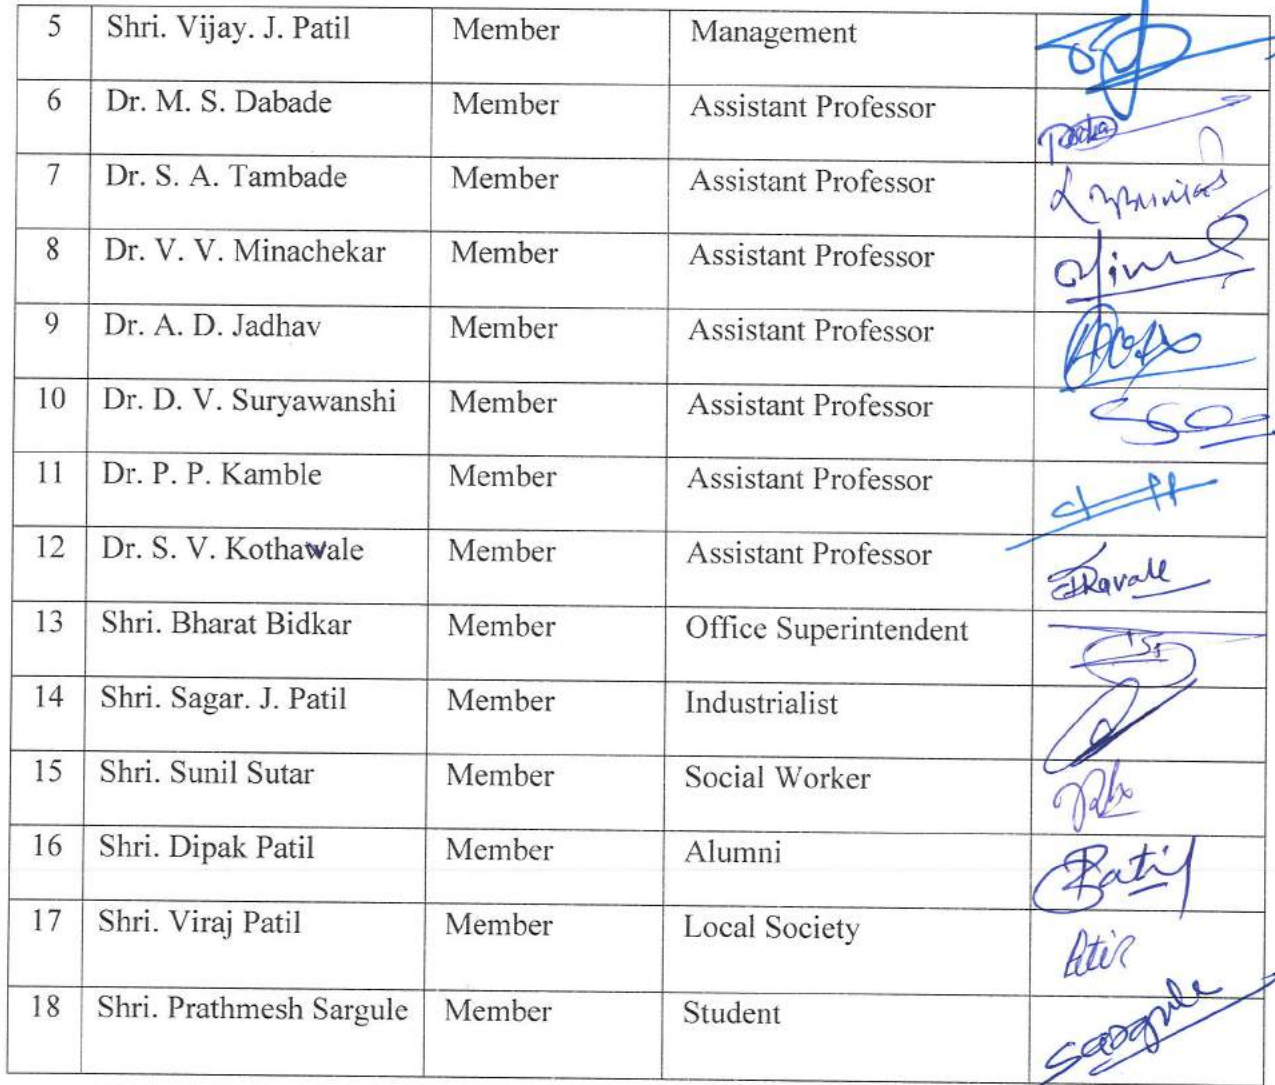 5 Shri. Vijay. J. Patil Member Management
6 Dr. M. S. Dabade Member Assistant Professor
7 Dr. S. A. Tambade Member Assistant Professor
8 Dr. V. V. Minachekar Member Assistant Professor
9 Dr. A. D. Jadhav Member Assistant Professor
10 Dr. D. V. Suryawanshi Member Assistant Professor
11 Dr. P. P. Kamble Member Assistant Professor
12 Dr. S. V. Kothawale Member Assistant Professor
13 Shri. Bharat Bidkar Member Office Superintendent
14 Shri. Sagar. J. Patil Member Industrialist
15 Shri. Sunil Sutar Member Social Worker
16 Shri. Dipak Patil Member Alumni Patil
17 Shri. Viraj Patil Member Local Society
18 Shri. Prathmesh Sargule Member Student Sargule